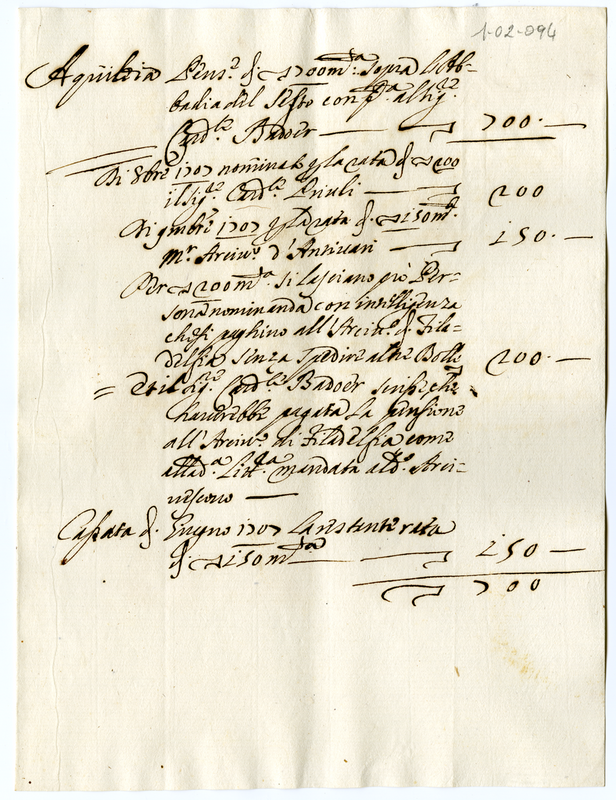 1-02-094
Aquileia Pens.e di ▽ 700 m.ta sopra l'Ab-
badia del Sesto con p.ta al Sig.re
Card.le Badoèr — 700 —
Di 8bre 1707 nominate p la rata di ▽ 200
il Sig.re Card.le Priuli — 200
Di 9mbre 1707 p la rata di ▽ 150 m.ta
Mr Arciuo. d'Antiuari — 150 —
Per ▽ 200 m.ta si lasciano p Per-
sona nominanda con intelligenza
che si paghino all'Arciuo. di Fila-
delfia senza spedire altre Bolle 200 —
= Et il Sig.re Card.le Badoèr scrisse che
hauerebbe pagata la pensione
all'Arciuo. di Filadelfia come
alla d.a mandata al d.o Arci-
uescouo —
Cassata di Giugno 1707 la restante rata
di ▽ 150 m.ta — 150 —
700